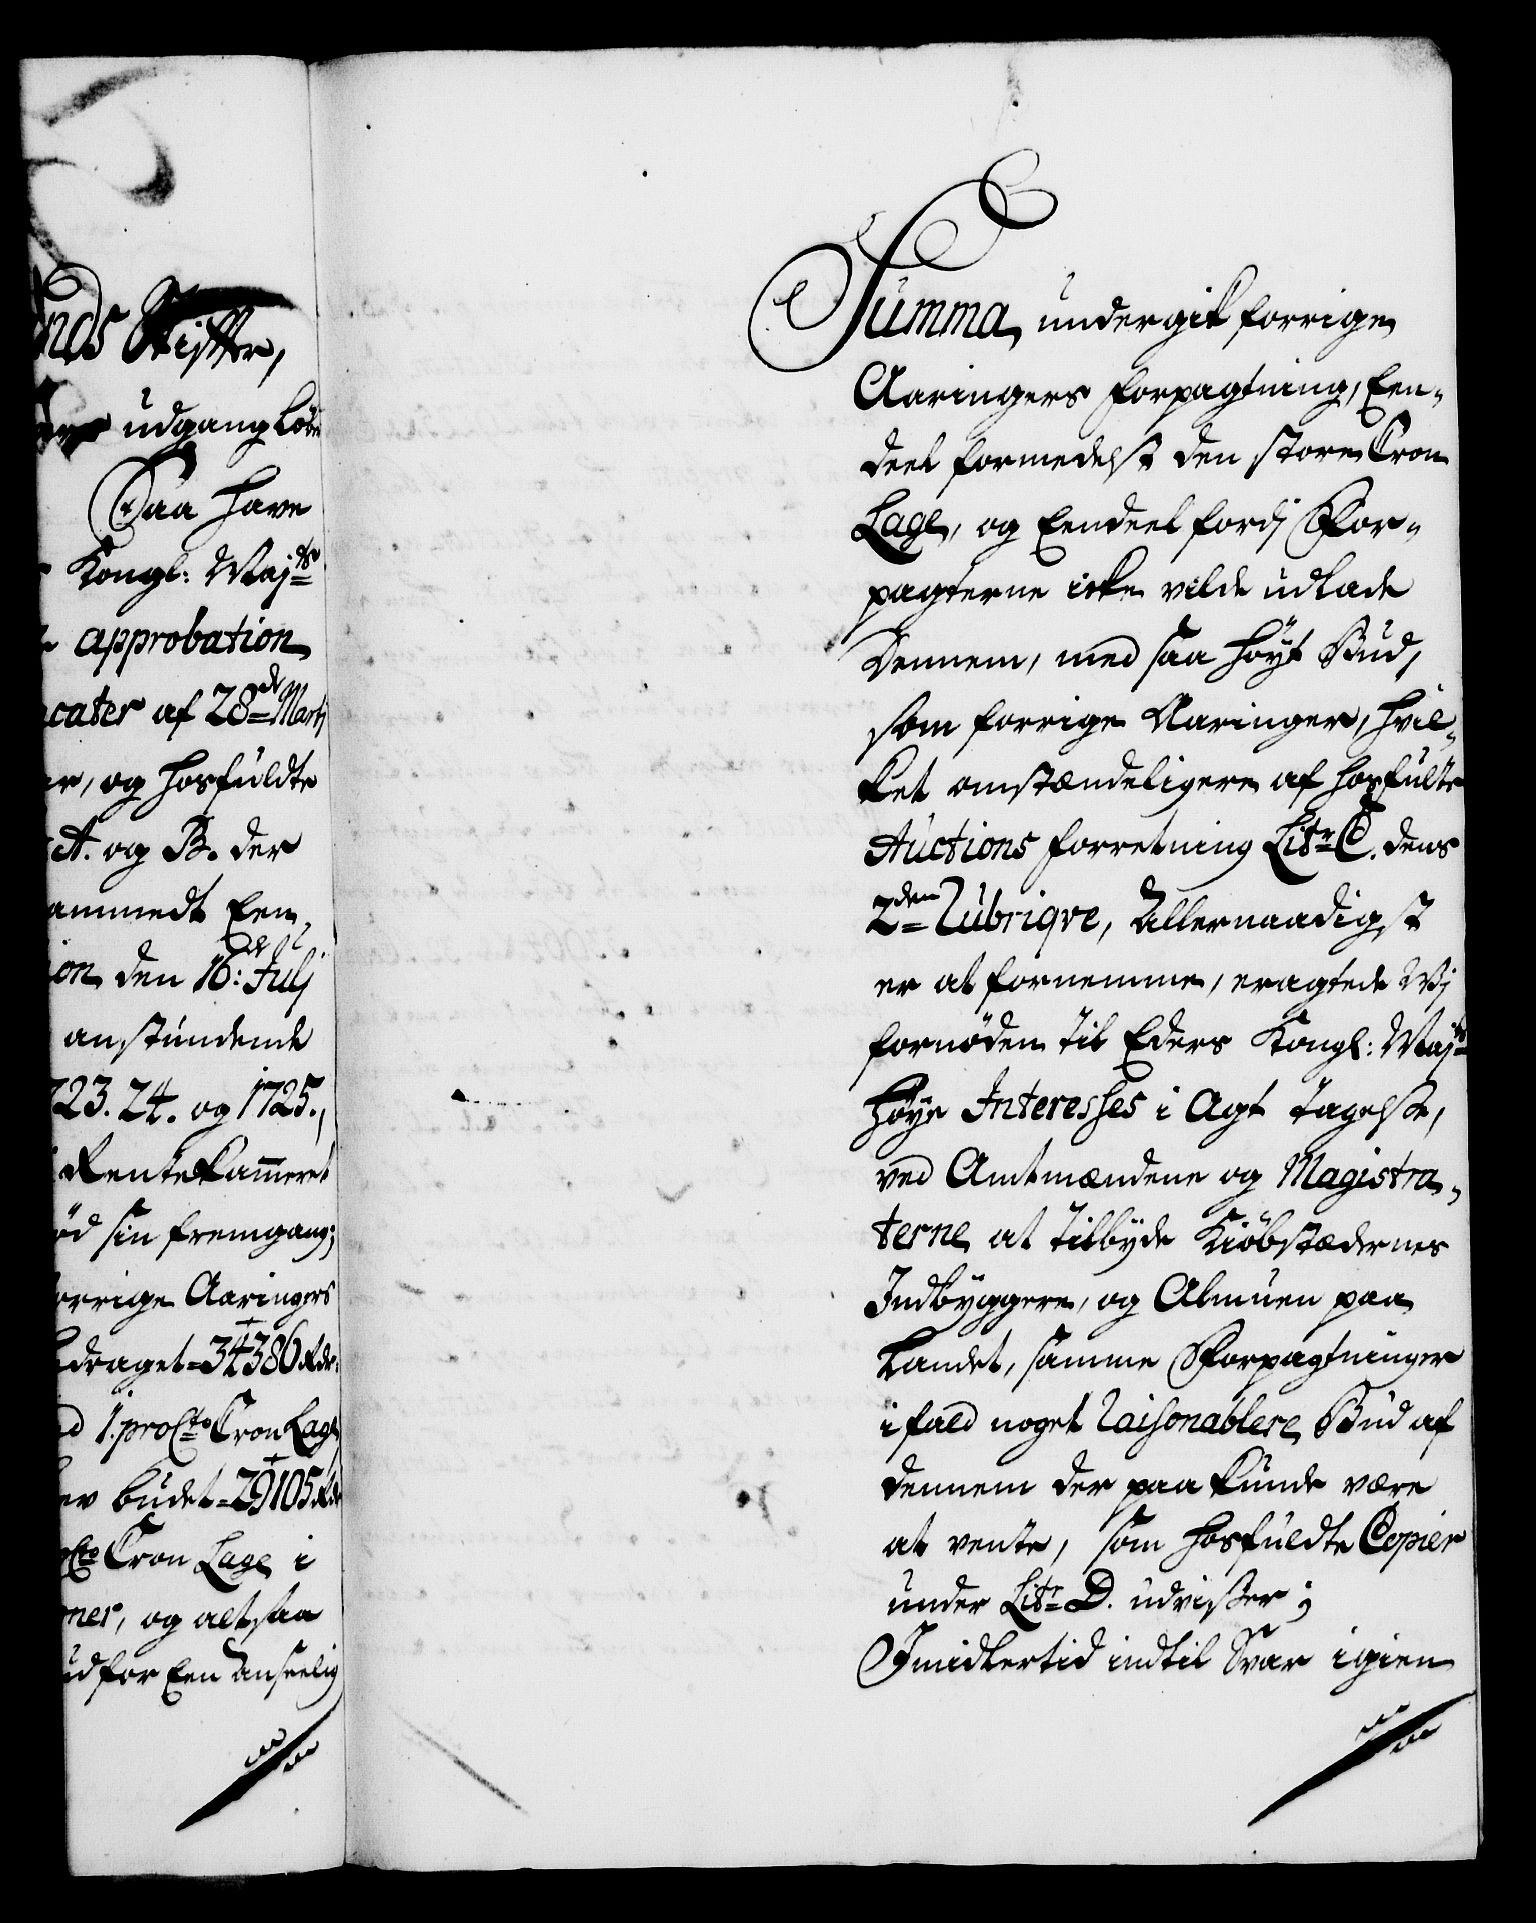 nds Stifter,
udgang Løbe
Saa have
Kongl: Maj:ts
approbation
cater af 28de Martj
er, og hosfuldte
A. og B. der
ammedt Een
ion den 16: Julj
anstundende
723. 24. og 1725.,
RenteKammeret
ød sin fremgang;
orrige Aaringers
draget = 34386 Rdr:
d 1. proCto Cron Lage
ev budet = 29105 Rdr
Cto Cron Lage i
ner, og altsaa
ud for Een Anseelig
Summa, undergik forrige
Aaringers Forpagtning, Een-
deel formedelst den store Cron
Lage, og Eendeel fordj For-
pagterne icke vilde udlade
Dennem, med saa høyt Bud,
som forrige Aaringer, hvil-
ket omstændeligere af hosfulte
Auctions Forretning Litr C. dens
2den Rubriqve, Allernaadigst
er at fornemme, eragtede Wj
fornøden til Eders Kongl: Maj:ts
høye Interesses i Agt tagelse,
ved Amtmændene og Magistra-
terne at tilbyde Kiøbstædernes
Indbyggere, og Almuen paa
Landet, samme Forpagtninger
ifald noget raisonablere Bud af
dennem der paa kunde være
at vente, som hosfuldte Copier
under Litr D. udvißer;
Imidlertid indtil Svar igien